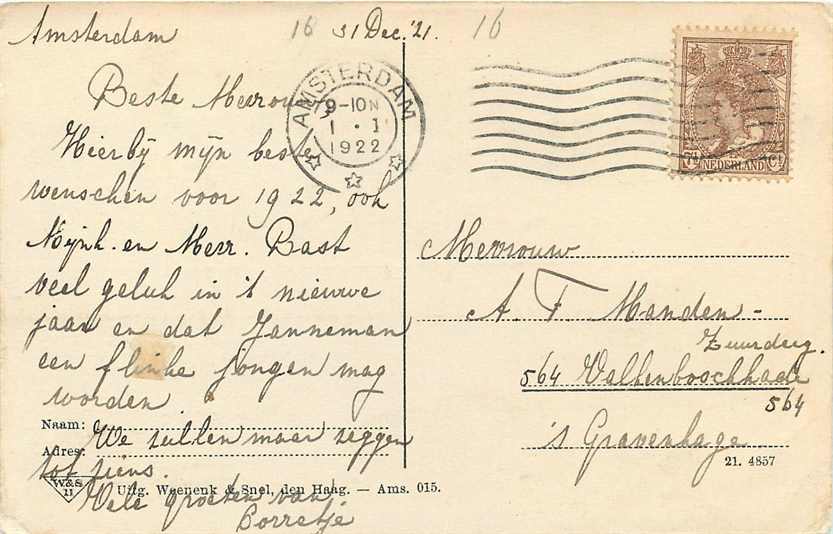 Amsterdam 16 31 Dec. '21. 16
Beste Mevrouw
AMSTERDAM
9-10 N
1 · I
1922
Hierbij mijn beste
wenschen voor 1922, ook
Mijnh. en Mevr. Bast
veel geluk in 't nieuwe
jaar en dat Janneman
een flinke jongen mag
worden.
Naam: We zullen maar zeggen
Adres: tot ziens.
Vele groeten van
Borretje
W&S
11
Uitg. Weenenk & Snel, den Haag. — Ams. 015.
7½ NEDERLAND Ct
Mevrouw
A. F. Manden-
564
564
's Gravenhage
21. 4857